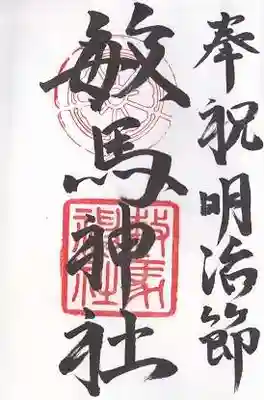 奉祝明治節
敏馬神社
敏馬
神社